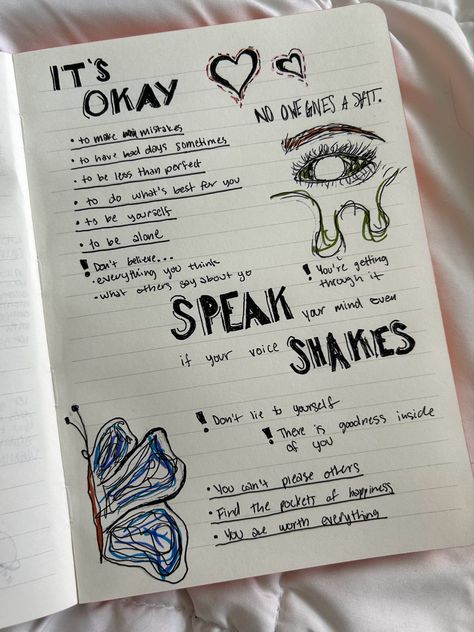 IT'S
OKAY
NO ONE GIVES A SHIT.
• to make mistakes
• to have bad days sometimes
• to be less than perfect
• to do what's best for you
• to be yourself
• to be alone
! Don't believe...
• everything you think
• what others say about yo
! You're getting
through it
SPEAK your mind even
if your voice SHAKES
! Don't lie to yourself
! There is goodness inside
of you
• You can't please others
• Find the pockets of happiness
• You are worth everything